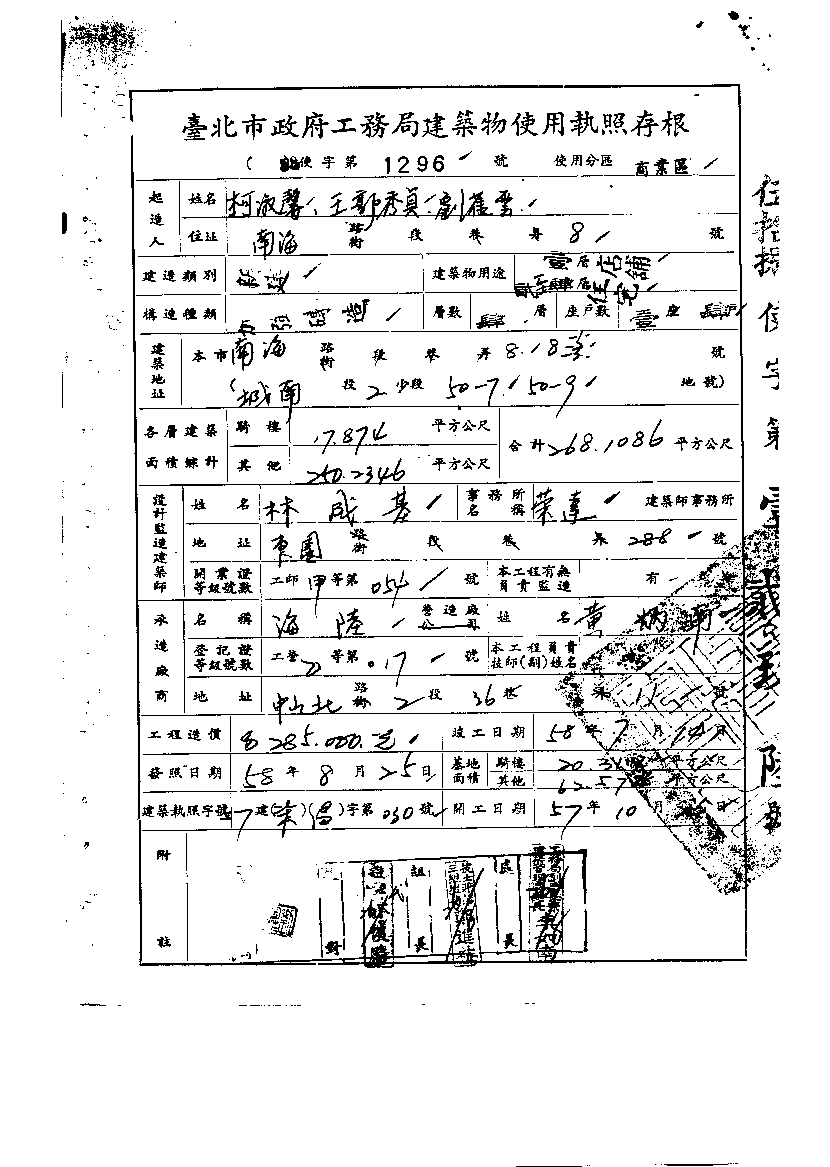 臺北市政府工務局建築物使用執照存根
( 使字第 1296 號 使用分區 商業區
起造人 姓名 柯淑馨、王郭秀貞、劉舊雲
住址 南海 路街 段 巷 弄 8 號
建造類別 建築物用途 壹層店舖 層住宅
構造種類 加強磚造 層數 肆 層 座戶數 壹座 肆戶
建築地址 本市 南海 路街 段 巷 弄 8.18 號
(城南 段 2 小段 50-7、50-9 地號)
各層建築面積總計 騎樓 17.874 平方公尺 合計 268.1086 平方公尺
其他 250.2346 平方公尺
設計監造建築師 姓名 林成基 事務所名稱 榮達 建築師事務所
地址 東園 路街 段 巷 弄 288 號
開業證等級號數 工師 甲 等第 054 號 本工程有無負責監造 有
承造廠商 名稱 海陸 營造廠公司 姓名 黃炳
登記證等級號數 工登 乙 等第 017 號 本工程負責技師(副)姓名
地址 中山北 路街 2 段 36 巷 弄 11 號
工程造價 285.000.元 竣工日期 58 年 7 月 14 日
發照日期 58 年 8 月 25 日 基地面積 騎樓 平方公尺
其他 平方公尺
建築執照字號 建( )( )字第 030 號 開工日期 57 年 10 月 日
附註
對 組長 處長
伍拾捌使字第壹貳玖陸號